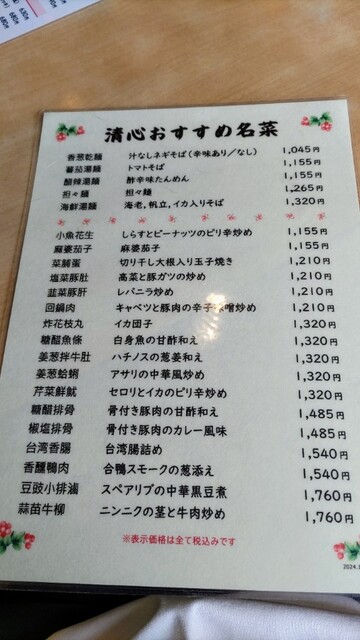 清心おすすめ名菜
香葱乾麺 汁なしネギそば(辛味あり/なし) 1,045円
蕃茄湯麺 トマトそば 1,155円
醋辣湯麺 酢辛味たんめん 1,155円
担々麺 担々麺 1,265円
海鮮湯麺 海老,帆立,イカ入りそば 1,320円
小魚花生 しらすとピーナッツのピリ辛炒め 1,155円
麻婆茄子 麻婆茄子 1,155円
菜脯蛋 切り干し大根入り玉子焼き 1,210円
塩菜豚肚 高菜と豚ガツの炒め 1,210円
韮菜豚肝 レバニラ炒め 1,210円
回鍋肉 キャベツと豚肉の辛子味噌炒め 1,210円
炸花枝丸 イカ団子 1,320円
糖醋魚條 白身魚の甘酢和え 1,320円
姜葱拌牛肚 ハチノスの葱姜和え 1,320円
姜葱蛤蜊 アサリの中華風炒め 1,320円
芹菜鮮魷 セロリとイカのピリ辛炒め 1,320円
糖醋排骨 骨付き豚肉の甘酢和え 1,485円
椒塩排骨 骨付き豚肉のカレー風味 1,485円
台湾香腸 台湾腸詰め 1,540円
香醺鴨肉 合鴨スモークの葱添え 1,540円
豆豉小排滷 スペアリブの中華黒豆煮 1,760円
蒜苗牛柳 ニンニクの茎と牛肉炒め 1,760円
※表示価格は全て税込みです